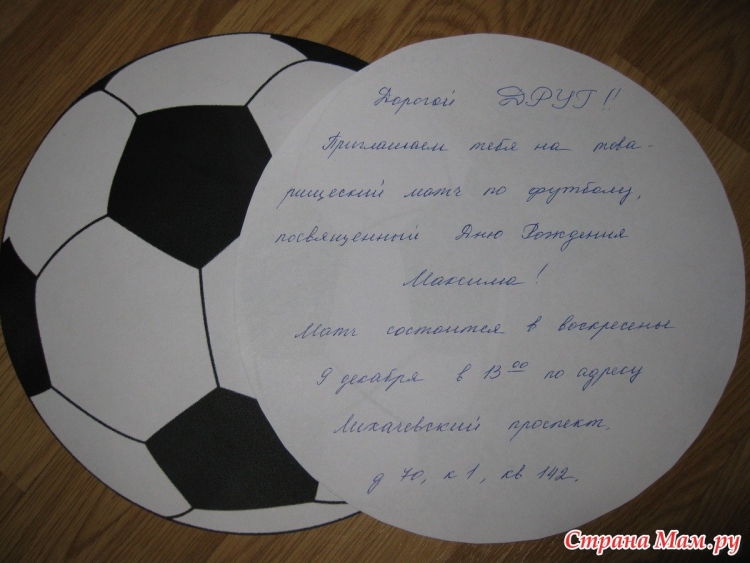 Дорогой ДРУГ!!
Приглашаем тебя на това-
рищеский матч по футболу,
посвященный Дню Рождения
Максима!
Матч состоится в воскресенье
9 декабря в 13⁰⁰ по адресу
Лихачевский проспект.
д 70, к 1, кв 142.
Страна Мам.ру